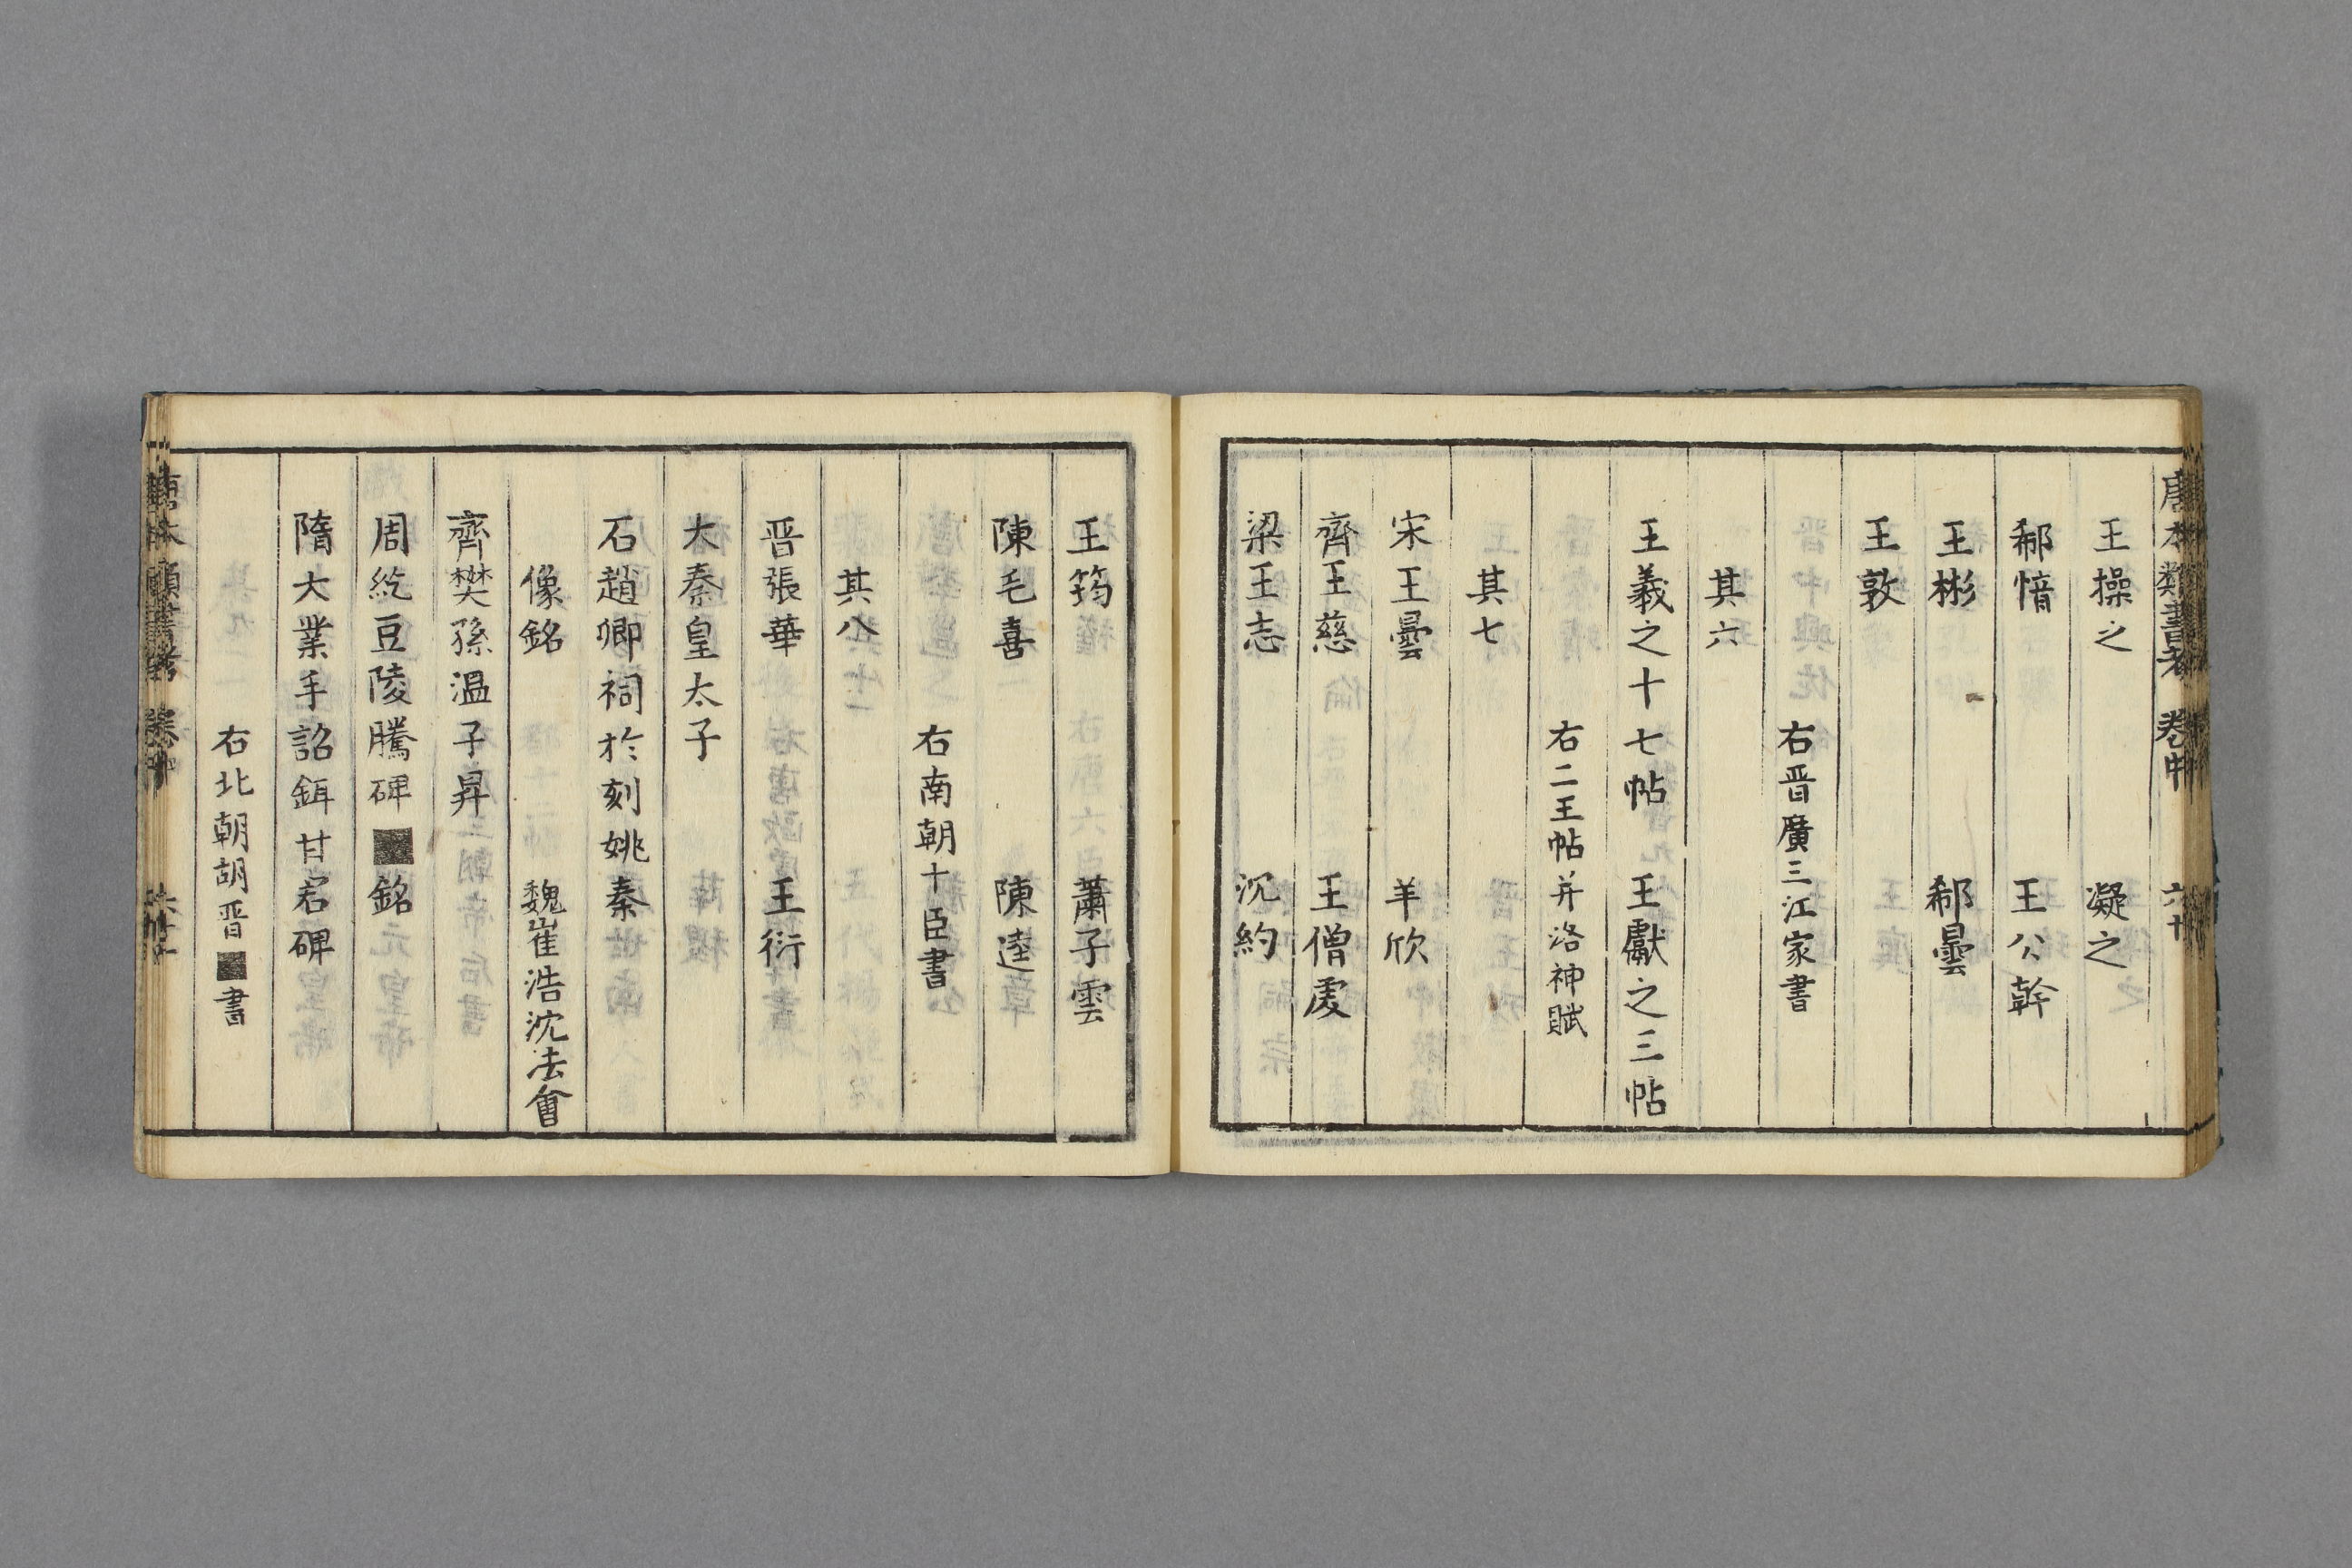 唐本類書考 卷中 六十
王操之 凝之
郗愔 王公幹
王彬 郗曇
王敦
右晋廣三江家書
其六
王羲之十七帖 王獻之三帖
右二王帖并洛神賦
其七
宋王曇 羊欣
齊王慈 王僧虔
梁王志 沉約
王筠 蕭子雲
陳毛喜 陳逵
右南朝十臣書
其八
晋張華 王衍
大秦皇太子
石趙卿祠於刻姚秦
像銘 魏崔浩沈法會
齊樊孫溫子昇
周紇豆陵騰碑■銘
隋大業手詔鉺甘君碑
右北朝胡晋■書